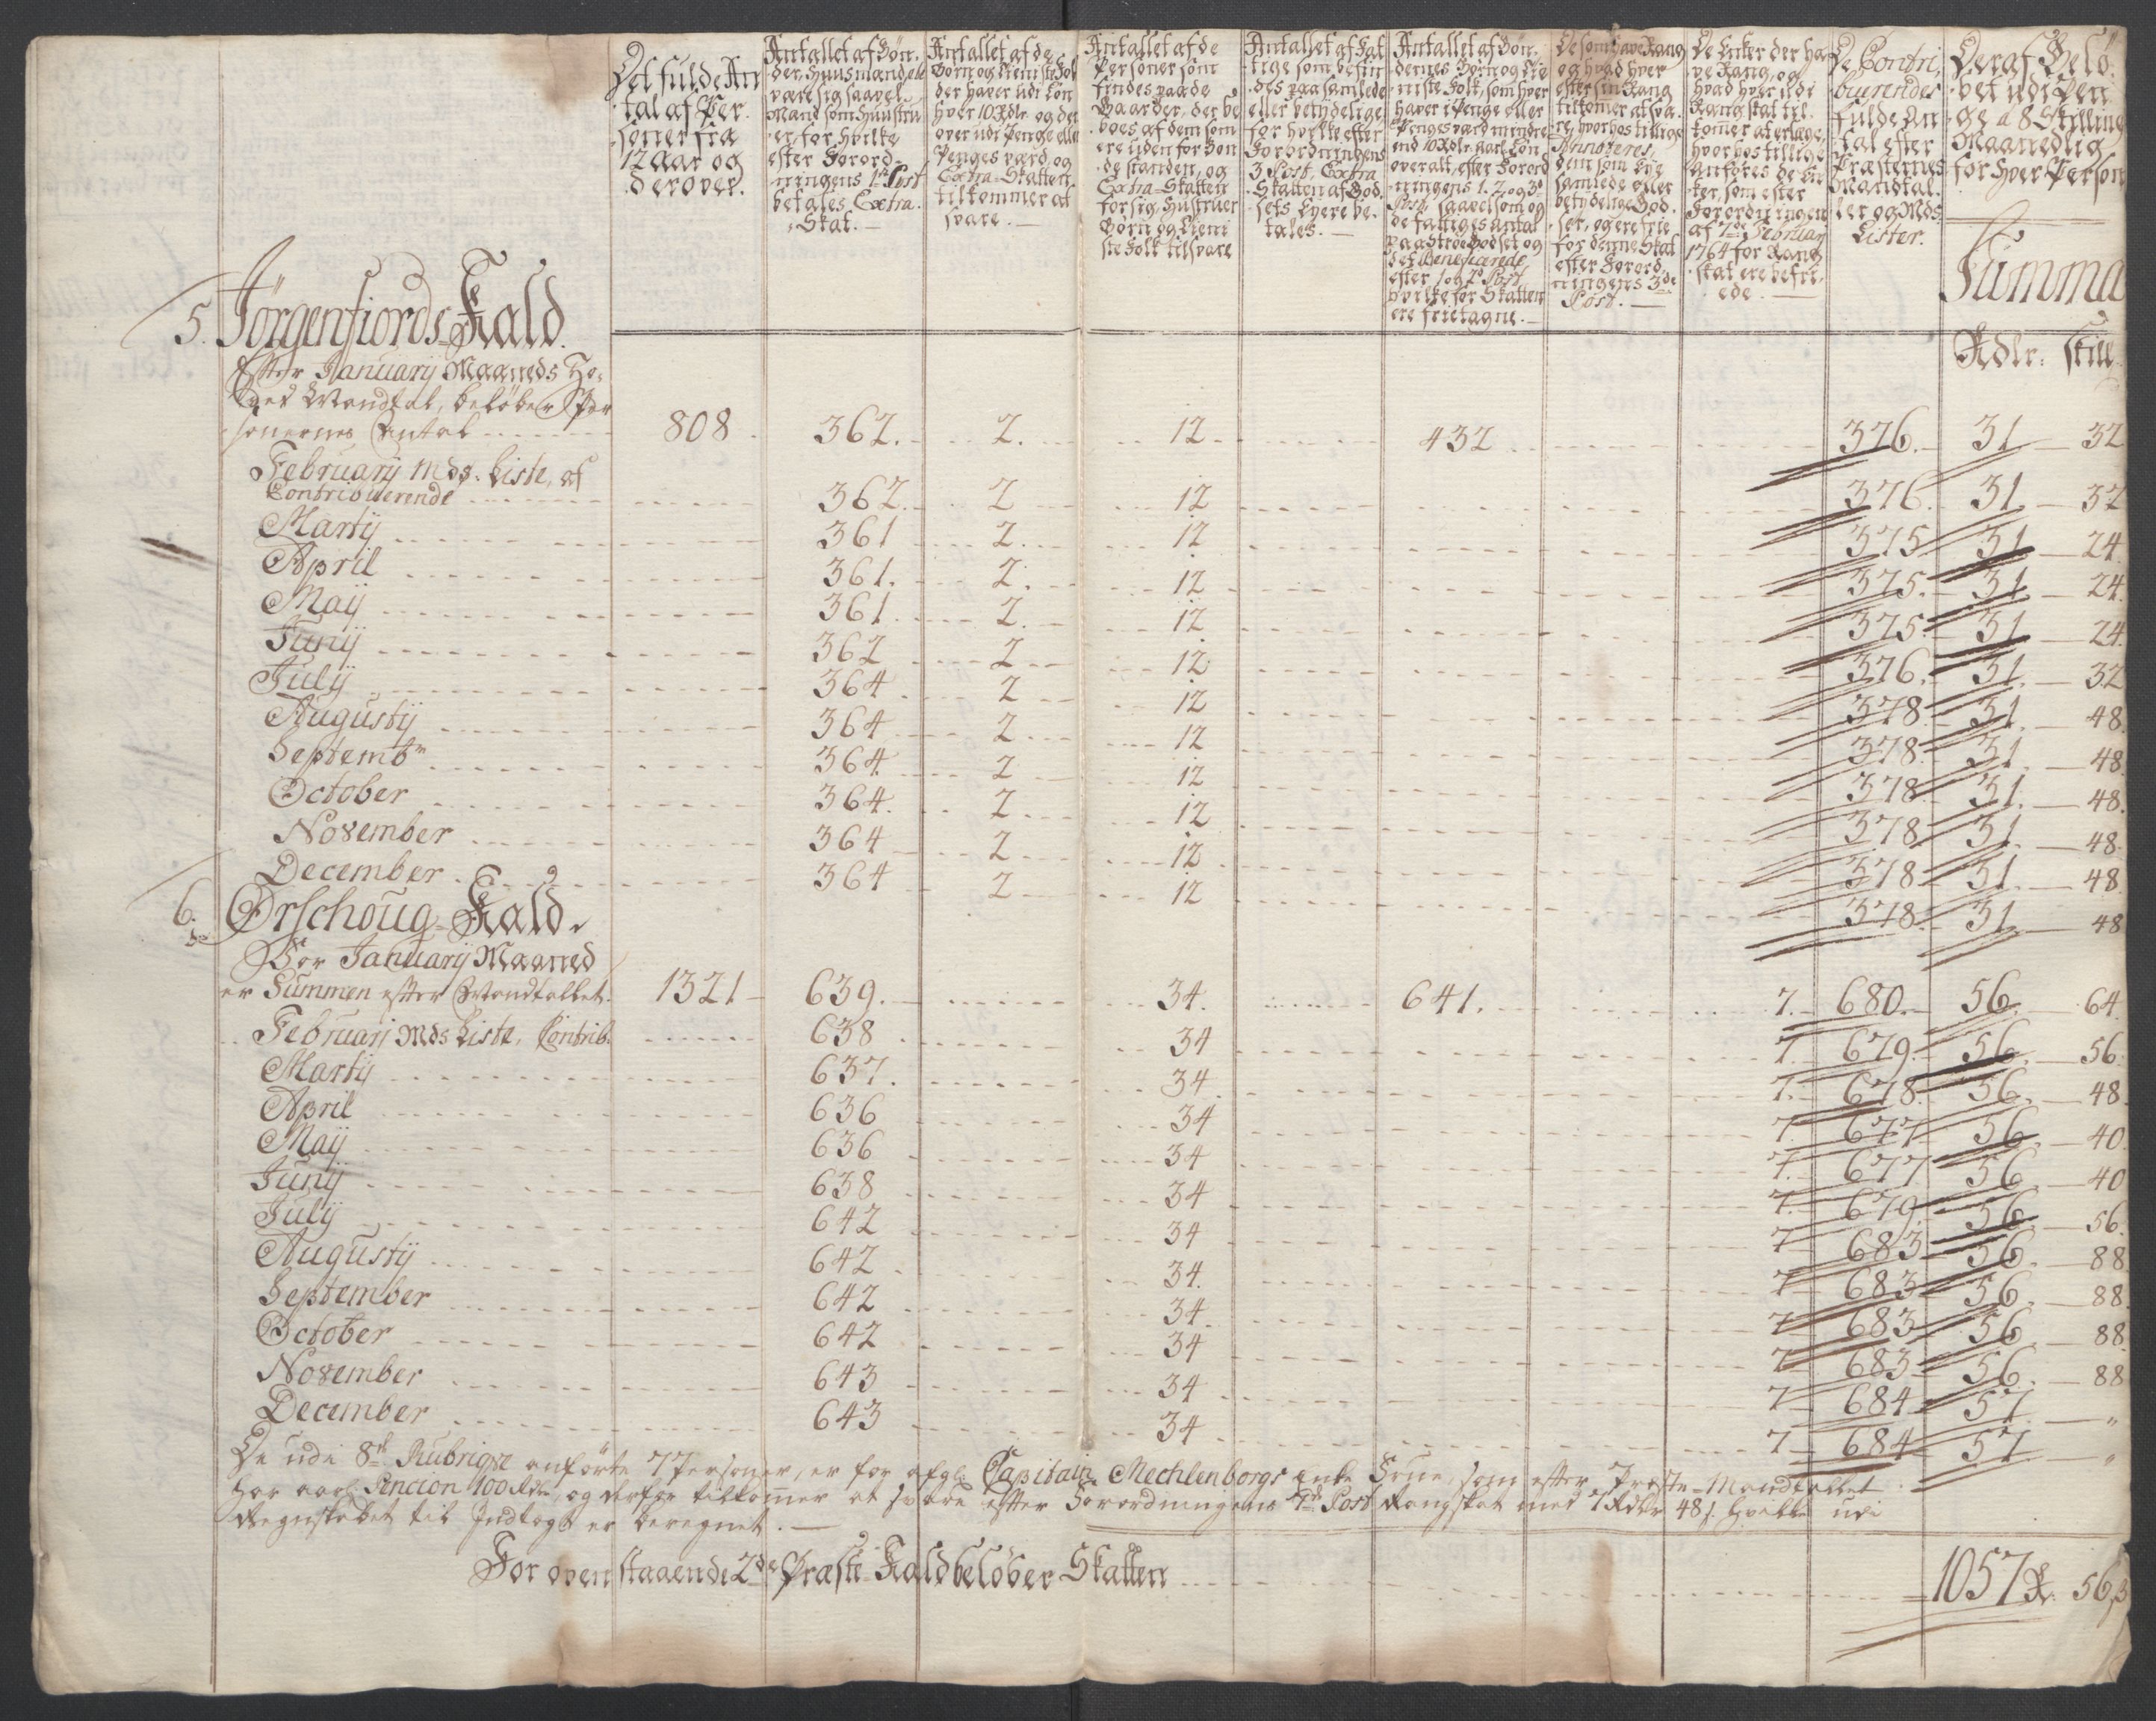 Det fulde An
tal af Per
soner fra
12 aar og
derover.
Antallet af Bøn
der, Huusmænd de
være sig saavel
Mand som Huustru
er, for hvilke
efter Forord
ningens 1ste Post
betales Extra
Skat.
Antallet af de
Børn og Tieniste Folk
der haver udi Løn
hver 10 Rdlr og der
over udi Penge eller
Penges værd, og
Extra-Skatten
tilkommer at
svare.
Antallet af de
Personer som
findes paa de
Gaarder, der be
boes af dem som
ere uden for Bon
de standen, og
Extra-Skatten
for sig, Hustruer
Børn og Tieni
ste Folk tilsvare
Antallet af Fat
tige som befin
des paa samlede
eller betydelige
for hvilke efter
Forordningens
3 Post, Extra
Skatten af God
sets Eyere be
tales.
Antallet af Bøn
dernes Børn og Tie
niste Folk, som hver
haver i Penge eller
Penges værd mindre
end 10 Rdlr aarl. Løn
overalt, efter Forord
ningens 1. 2 og 3de
Post, saavelsom og
de fattiges Antal
paa Strøe Godset og
det Beneficerede
efter 1 og 2de Post
hvilke for Skatten
ere frietagne.
De som have Rang
og hvad hver
efter sin Rang
tilkomer at sva
re, hvorhos tillige
Annoteres,
dem som Eye
samlede eller
betydelige God
ser, og ere frie
for denne Skat
efter Forord
ningens 3de
Post.
De Enker der ha
ve Rang, og
hvad hver udi
Rangskat til
komer at erlægge,
hvorhos tillige
anføres de En
ker, som efter
Forordningen
af 7de Februarij
1764 for Rang
skat ere befri
ede.
De Contri
buerendes
fulde An
tal efter
Præsternes
Mandtal
ler og Mds
Lister.
Deraf Belø
bet udi Pen
ge a 8 Skilling
Maanedlig
for hver Person
Summa
Rdlr: Skill
5. Jørgenfiords Kald.
Efter Januarij Maaneds Ho
ved Mandtal, beløber Per
sonernes Antal 808 362. 2. 12 432 376. 31 32
February Mds. Liste, af
Contribuerende 362. 2 12 376. 31 32
Martij 361 2. 12 375 31 24.
April 361. 2. 12 375. 31 24.
Maij 361. 2. 12 375. 31 24.
Junij 362 2 12 376. 31. 32
Julij 364 2 12 378 31. 48.
Augustij 364 2 12 378. 31. 48.
Septembr 364. 2 12 378. 31. 48.
October 364. 2 12 378 31. 48.
November 364 2 12 378 31. 48.
December 364 2 12 378. 31 48
6. Ørschoug Kald.
For Januarij Maaned
er Summen efter Mandtallet. 1321 639. 34. 641. 7. 680. 56. 64.
Februarj Mds Liste, Contrib. 638 34 7. 679. 56. 56.
Martij 637. 34 7. 678. 56. 48.
April 636 34 7. 677 56. 40.
Maij 636 34 7. 677 56. 40
Junij 638 34 7. 679 56. 56.
Julij 642 34 7 683 56. 88.
Augustij 642 34. 7 683 56. 88.
September 642 34. 7 683 56 88.
October 642 34 7 683 56. 88
November 643 34 7 684 57 "
December 643 34 7 684 57 "
De udi 8de Rubriqve anførte 7 Personer, er for afgl. Capitain Mechlenborgs Enke Frue, som efter Præste-Mandtallet
har aarl. Pencion 100 Rdlr, og derfor tilkommer at svare efter Forordningens 7de Post Rangskat med 7 Rdlr 48 s. hvilke udi
Regnskabet til Indtægt er beregnet.
For oven staaende 2de Præste Kald beløber Skatten 1057 R 56 s